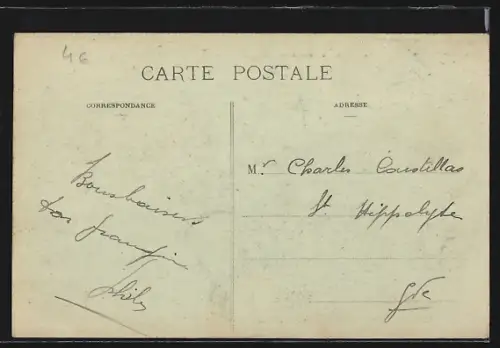 4 €
CARTE POSTALE
CORRESPONDANCE
ADRESSE
Bons baisers
ton
Mr. Charles Coustillas
St Hippolyte